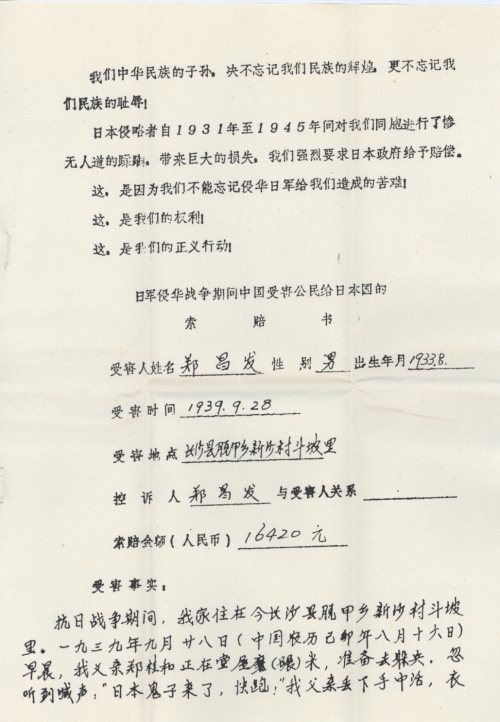 我们中华民族的子孙，决不忘记我们民族的辉煌，更不忘记我
们民族的耻辱！
日本侵略者自1931年至1945年间对我们同胞进行了惨
无人道的蹂躏，带来巨大的损失，我们强烈要求日本政府给予赔偿。
这，是因为我们不能忘记侵华日军给我们造成的苦难！
这，是我们的权利！
这，是我们的正义行动！
日军侵华战争期间中国受害公民给日本国的
索 赔 书
受害人姓名 郑昌发 性 别 男 出生年月 1933.8.
受害时间 1939.9.28
受害地点 长沙县脱甲乡新沙村斗坡里
控 诉 人 郑昌发 与受害人关系
索赔金额（人民币） 16420元
受害事实：
抗日战争期间，我家住在今长沙县脱甲乡新沙村斗坡
里。一九三九年九月廿八日（中国农历己卯年八月十六日）
早晨，我父亲郑桂和正在堂屋 米，准备去躲兵，忽
听到喊声：“日本鬼子来了，快跑！”我父亲丢下手中活，衣